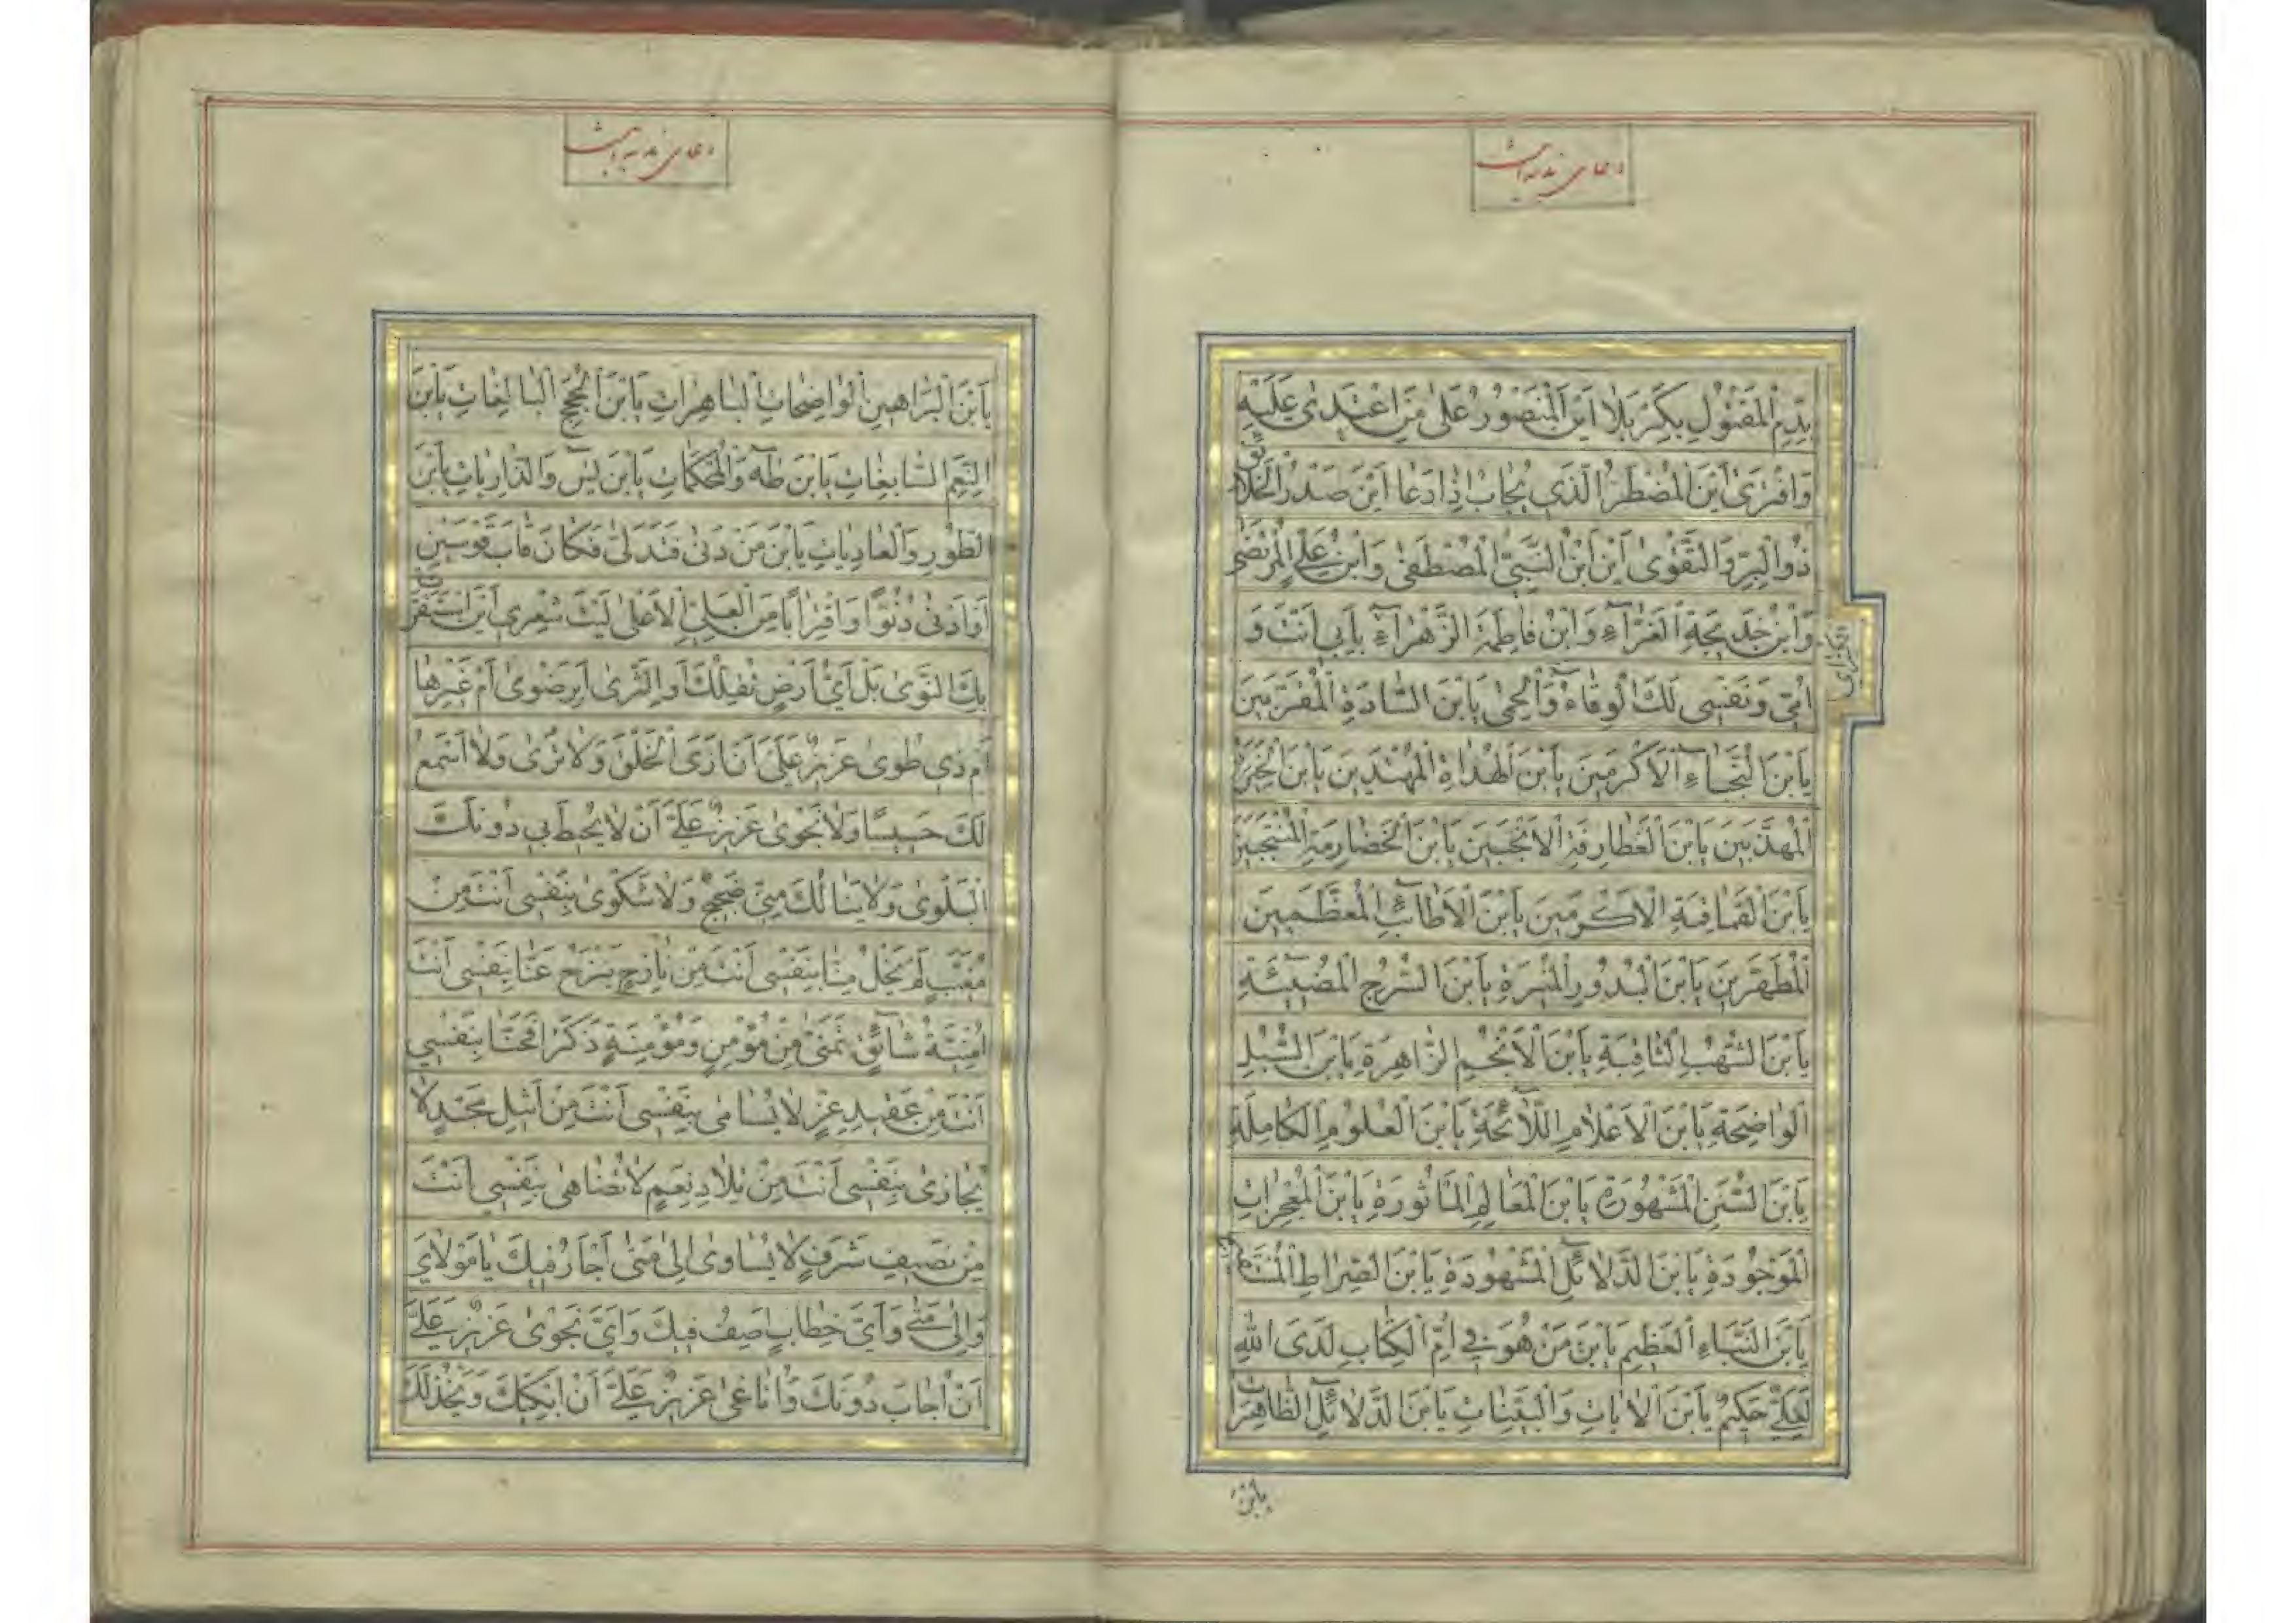 دعای ندبه است
بِدَمِ الْمَقْتُولِ بِكَرْبَلَا اَيْنَ الْمَنْصُورُ عَلٰى مَنِ اعْتَدٰى عَلَيْهِ
وَافْتَرٰى اَيْنَ الْمُضْطَرُّ الَّذِى يُجَابُ اِذَا دَعَا اَيْنَ صَدْرُ الْخَلَائِقِ
ذُو الْبِرِّ وَالتَّقْوٰى اَيْنَ ابْنُ النَّبِىِّ الْمُصْطَفٰى وَابْنُ عَلِىٍّ الْمُرْتَضٰى
وَابْنُ خَدِيجَةِ الْغَرَّاءِ وَابْنُ فَاطِمَةَ الزَّهْرَاءِ بِاَبِى اَنْتَ وَ
اُمِّى وَنَفْسِى لَكَ الْوِقَاءُ وَالْحِمٰى يَابْنَ السَّادَةِ الْمُقَرَّبِينَ
يَابْنَ النُّجَبَاءِ الْاَكْرَمِينَ يَابْنَ الْهُدَاةِ الْمُهْتَدِينَ يَابْنَ الْخِيَرَةِ
الْمُهَذَّبِينَ يَابْنَ الْغَطَارِفَةِ الْاَنْجَبِينَ يَابْنَ الْخَضَارِمَةِ الْمُنْتَجَبِينَ
يَابْنَ الْقَمَاقِمَةِ الْاَكْرَمِينَ يَابْنَ الْاَطَائِبِ الْمُعَظَّمِينَ
الْمُطَهَّرِينَ يَابْنَ الْبُدُورِ الْمُنِيرَةِ يَابْنَ السُّرُجِ الْمُضِيئَةِ
يَابْنَ الشُّهُبِ الثَّاقِبَةِ يَابْنَ الْاَنْجُمِ الزَّاهِرَةِ يَابْنَ السُّبُلِ
الْوَاضِحَةِ يَابْنَ الْاَعْلَامِ اللَّائِحَةِ يَابْنَ الْعُلُومِ الْكَامِلَةِ
يَابْنَ السُّنَنِ الْمَشْهُورَةِ يَابْنَ الْمَعَالِمِ الْمَاْثُورَةِ يَابْنَ الْمُعْجِزَاتِ
الْمَوْجُودَةِ يَابْنَ الدَّلَائِلِ الْمَشْهُودَةِ يَابْنَ الصِّرَاطِ الْمُسْتَقِيمِ
يَابْنَ النَّبَاءِ الْعَظِيمِ يَابْنَ مَنْ هُوَ فِى اُمِّ الْكِتَابِ لَدَى اللهِ
لَعَلِىٌّ حَكِيمٌ يَابْنَ الْاٰيَاتِ وَالْبَيِّنَاتِ يَابْنَ الدَّلَائِلِ الظَّاهِرَاتِ
يَابْنَ
دعای ندبه است
يَابْنَ الْبَرَاهِينِ الْوَاضِحَاتِ الْبَاهِرَاتِ يَابْنَ الْحُجَجِ الْبَالِغَاتِ يَابْنَ
النِّعَمِ السَّابِغَاتِ يَابْنَ طٰهٰ وَالْمُحْكَمَاتِ يَابْنَ يٰسۤ وَالذَّارِيَاتِ يَابْنَ
الطُّورِ وَالْعَادِيَاتِ يَابْنَ مَنْ دَنٰى فَتَدَلّٰى فَكَانَ قَابَ قَوْسَيْنِ
اَوْ اَدْنٰى دُنُوًّا وَاقْتِرَابًا مِنَ الْعَلِىِّ الْاَعْلٰى لَيْتَ شِعْرِى اَيْنَ اسْتَقَرَّتْ
بِكَ النَّوٰى بَلْ اَىُّ اَرْضٍ تُقِلُّكَ اَوِ الثَّرٰى اَبِرَضْوٰى اَمْ غَيْرِهَا
اَمْ ذِى طُوٰى عَزِيزٌ عَلَىَّ اَنْ اَرَى الْخَلْقَ وَلَا تُرٰى وَلَا اَسْمَعُ
لَكَ حَسِيسًا وَلَا نَجْوٰى عَزِيزٌ عَلَىَّ اَنْ لَا يُحِيطَ بِى دُونَكَ
الْبَلْوٰى وَلَا يَنَالُكَ مِنِّى ضَجِيجٌ وَلَا شَكْوٰى بِنَفْسِى اَنْتَ مِنْ
مُغَيَّبٍ لَمْ يَخْلُ مِنَّا بِنَفْسِى اَنْتَ مِنْ نَازِحٍ يَنْزَحُ عَنَّا بِنَفْسِى اَنْتَ
اُمْنِيَّةُ شَائِقٍ تَمَنّٰى مِنْ مُؤْمِنٍ وَمُؤْمِنَةٍ ذَكَرَا فَحَنَّا بِنَفْسِى
اَنْتَ مِنْ عَقِيدِ عِزٍّ لَا يُسَامٰى بِنَفْسِى اَنْتَ مِنْ اَثِيلِ مَجْدٍ لَا
يُجَازٰى بِنَفْسِى اَنْتَ مِنْ تِلَادِ نِعَمٍ لَا تُضَاهٰى بِنَفْسِى اَنْتَ
مِنْ نَصِيفِ شَرَفٍ لَا يُسَاوٰى اِلٰى مَتٰى اَحَارُ فِيكَ يَا مَوْلَاىَ
وَاِلٰى مَتٰى وَاَىَّ خِطَابٍ اَصِفُ فِيكَ وَاَىَّ نَجْوٰى عَزِيزٌ عَلَىَّ
اَنْ اُجَابَ دُونَكَ وَاُنَاغٰى عَزِيزٌ عَلَىَّ اَنْ اَبْكِيَكَ وَيَخْذُلَكَ